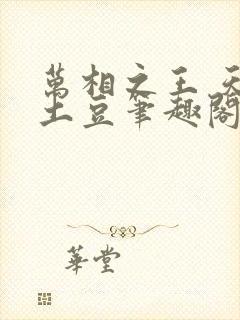 萬相之王 天
土豆筆趣閣
華堂